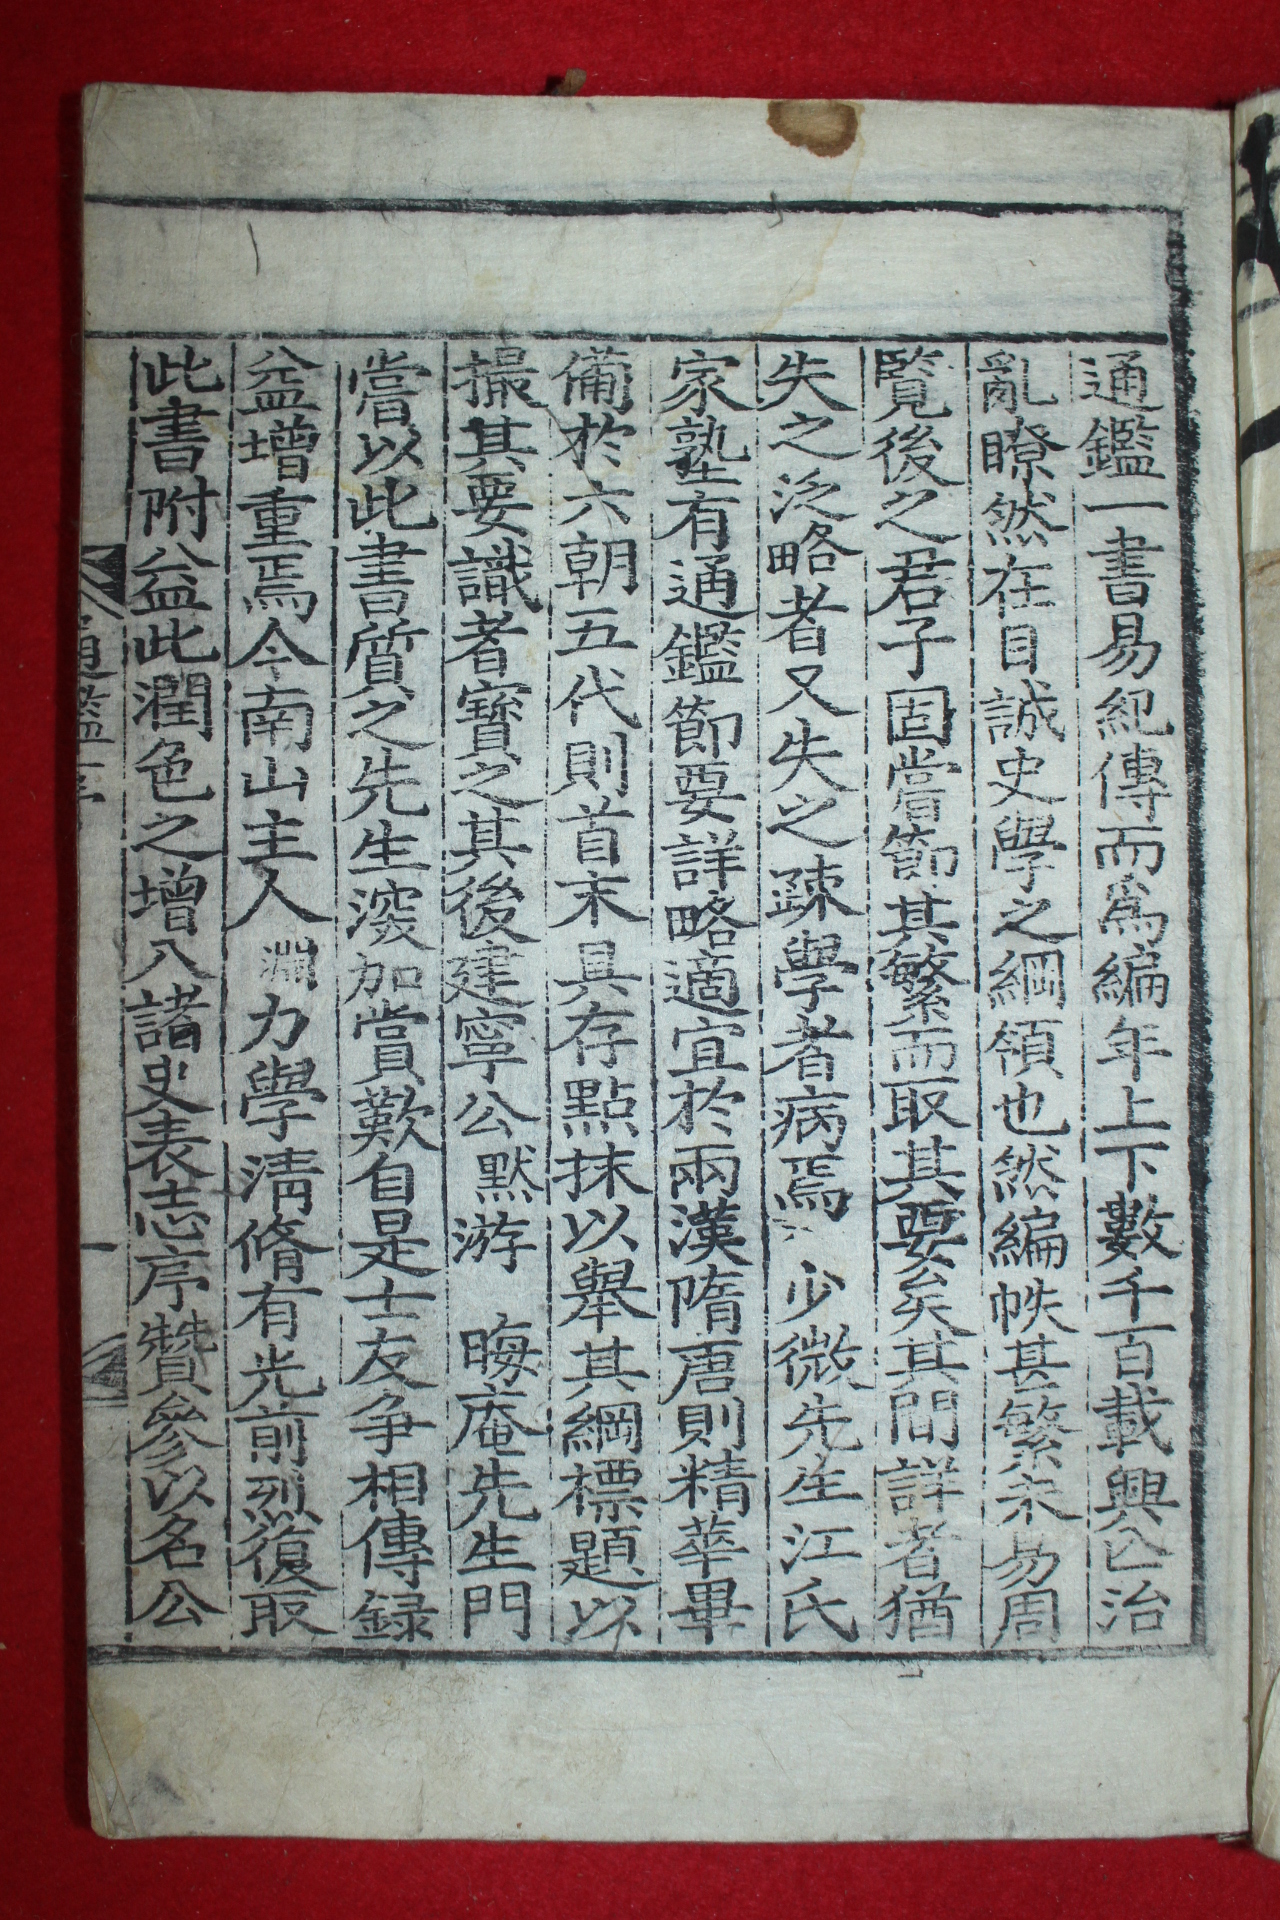 通鑑一書易紀傳而爲編年上下數千百載興亾治
亂瞭然在目誠史學之綱領也然編帙甚繁未易周
覽後之君子固嘗節其繁而取其要矣其間詳者猶
失之泛略者又失之疎學者病焉 少微先生江氏
家塾有通鑑節要詳略適宜於兩漢隋唐則精華畢
備於六朝五代則首末具存點抹以舉其綱標題以
撮其要識者寳之其後建寧公默游 晦庵先生門
嘗以此書質之先生深加賞歎自是士友争相傳録
益增重焉今南山主人淵力學清脩有光前烈復取
此書附益此潤色之增入諸史表志序贊參以名公
通鑑序 一